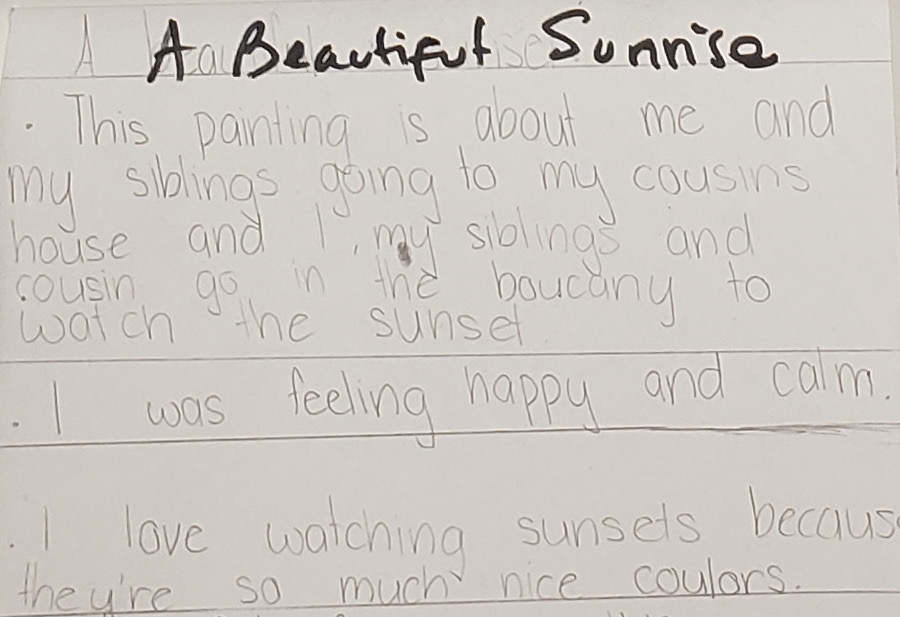 A Beautiful Sunrise
. This painting is about me and
my siblings going to my cousins
house and I, my siblings and
cousin go in the boucany to
watch the sunset
. I was feeling happy and calm.
. I love watching sunsets becaus
they're so much nice coulors.